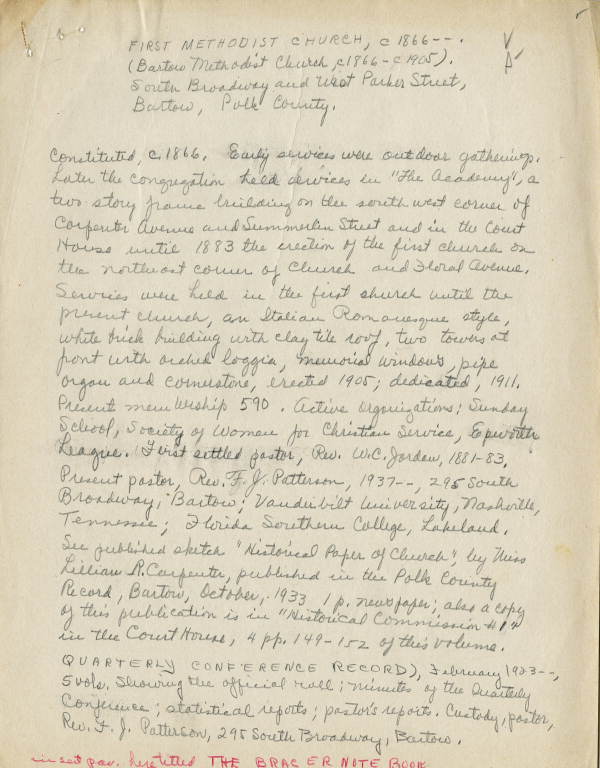 FIRST METHODIST CHURCH, c 1866--.
(Bartow Methodist Church, c1866-c1905).
South Broadway and West Parker Street,
Bartow, Polk County.
Constituted, c. 1866. Early services were outdoor gatherings.
Later the congregation held services in "The Academy", a
two story frame building on the south west corner of
Carpenter Avenue and Summerlin Street and in the Court
House until 1883 the erection of the first church on
the northeast corner of Church and Floral Avenue.
Services were held in the first church until the
present church, an Italian Romanesque style,
white brick building with clay tile roof, two towers at
front with arched loggia, memorial windows, pipe
organ and cornerstone, erected 1905; dedicated, 1911.
Present membership 590. Active Organizations; Sunday
School, Society of Women for Christian Service, Epworth
League. First settled pastor, Rev. W.C. Jordan, 1881-83.
Present pastor, Rev. F. J. Patterson, 1937--, 295 South
Broadway, Bartow; Vanderbilt University, Nashville,
Tennessee; Florida Southern College, Lakeland.
See published sketch "Historical Paper of Church", by Miss
Lillian R. Carpenter, published in the Polk County
Record, Bartow, October, 1933 1 p. newspaper; also a copy
of this publication is in "Historical Commission #1"
in the Court House, 4 pp. 149-152 of this volume.
QUARTERLY CONFERENCE RECORD), February 1923--,
5 vols. Showing the official roll; minutes of the Quarterly
Conference; statistical reports; pastor's reports. Custody, pastor,
Rev. F. J. Patterson, 295 South Broadway, Bartow.
insert par. here titled THE BRACER NOTE BOOK